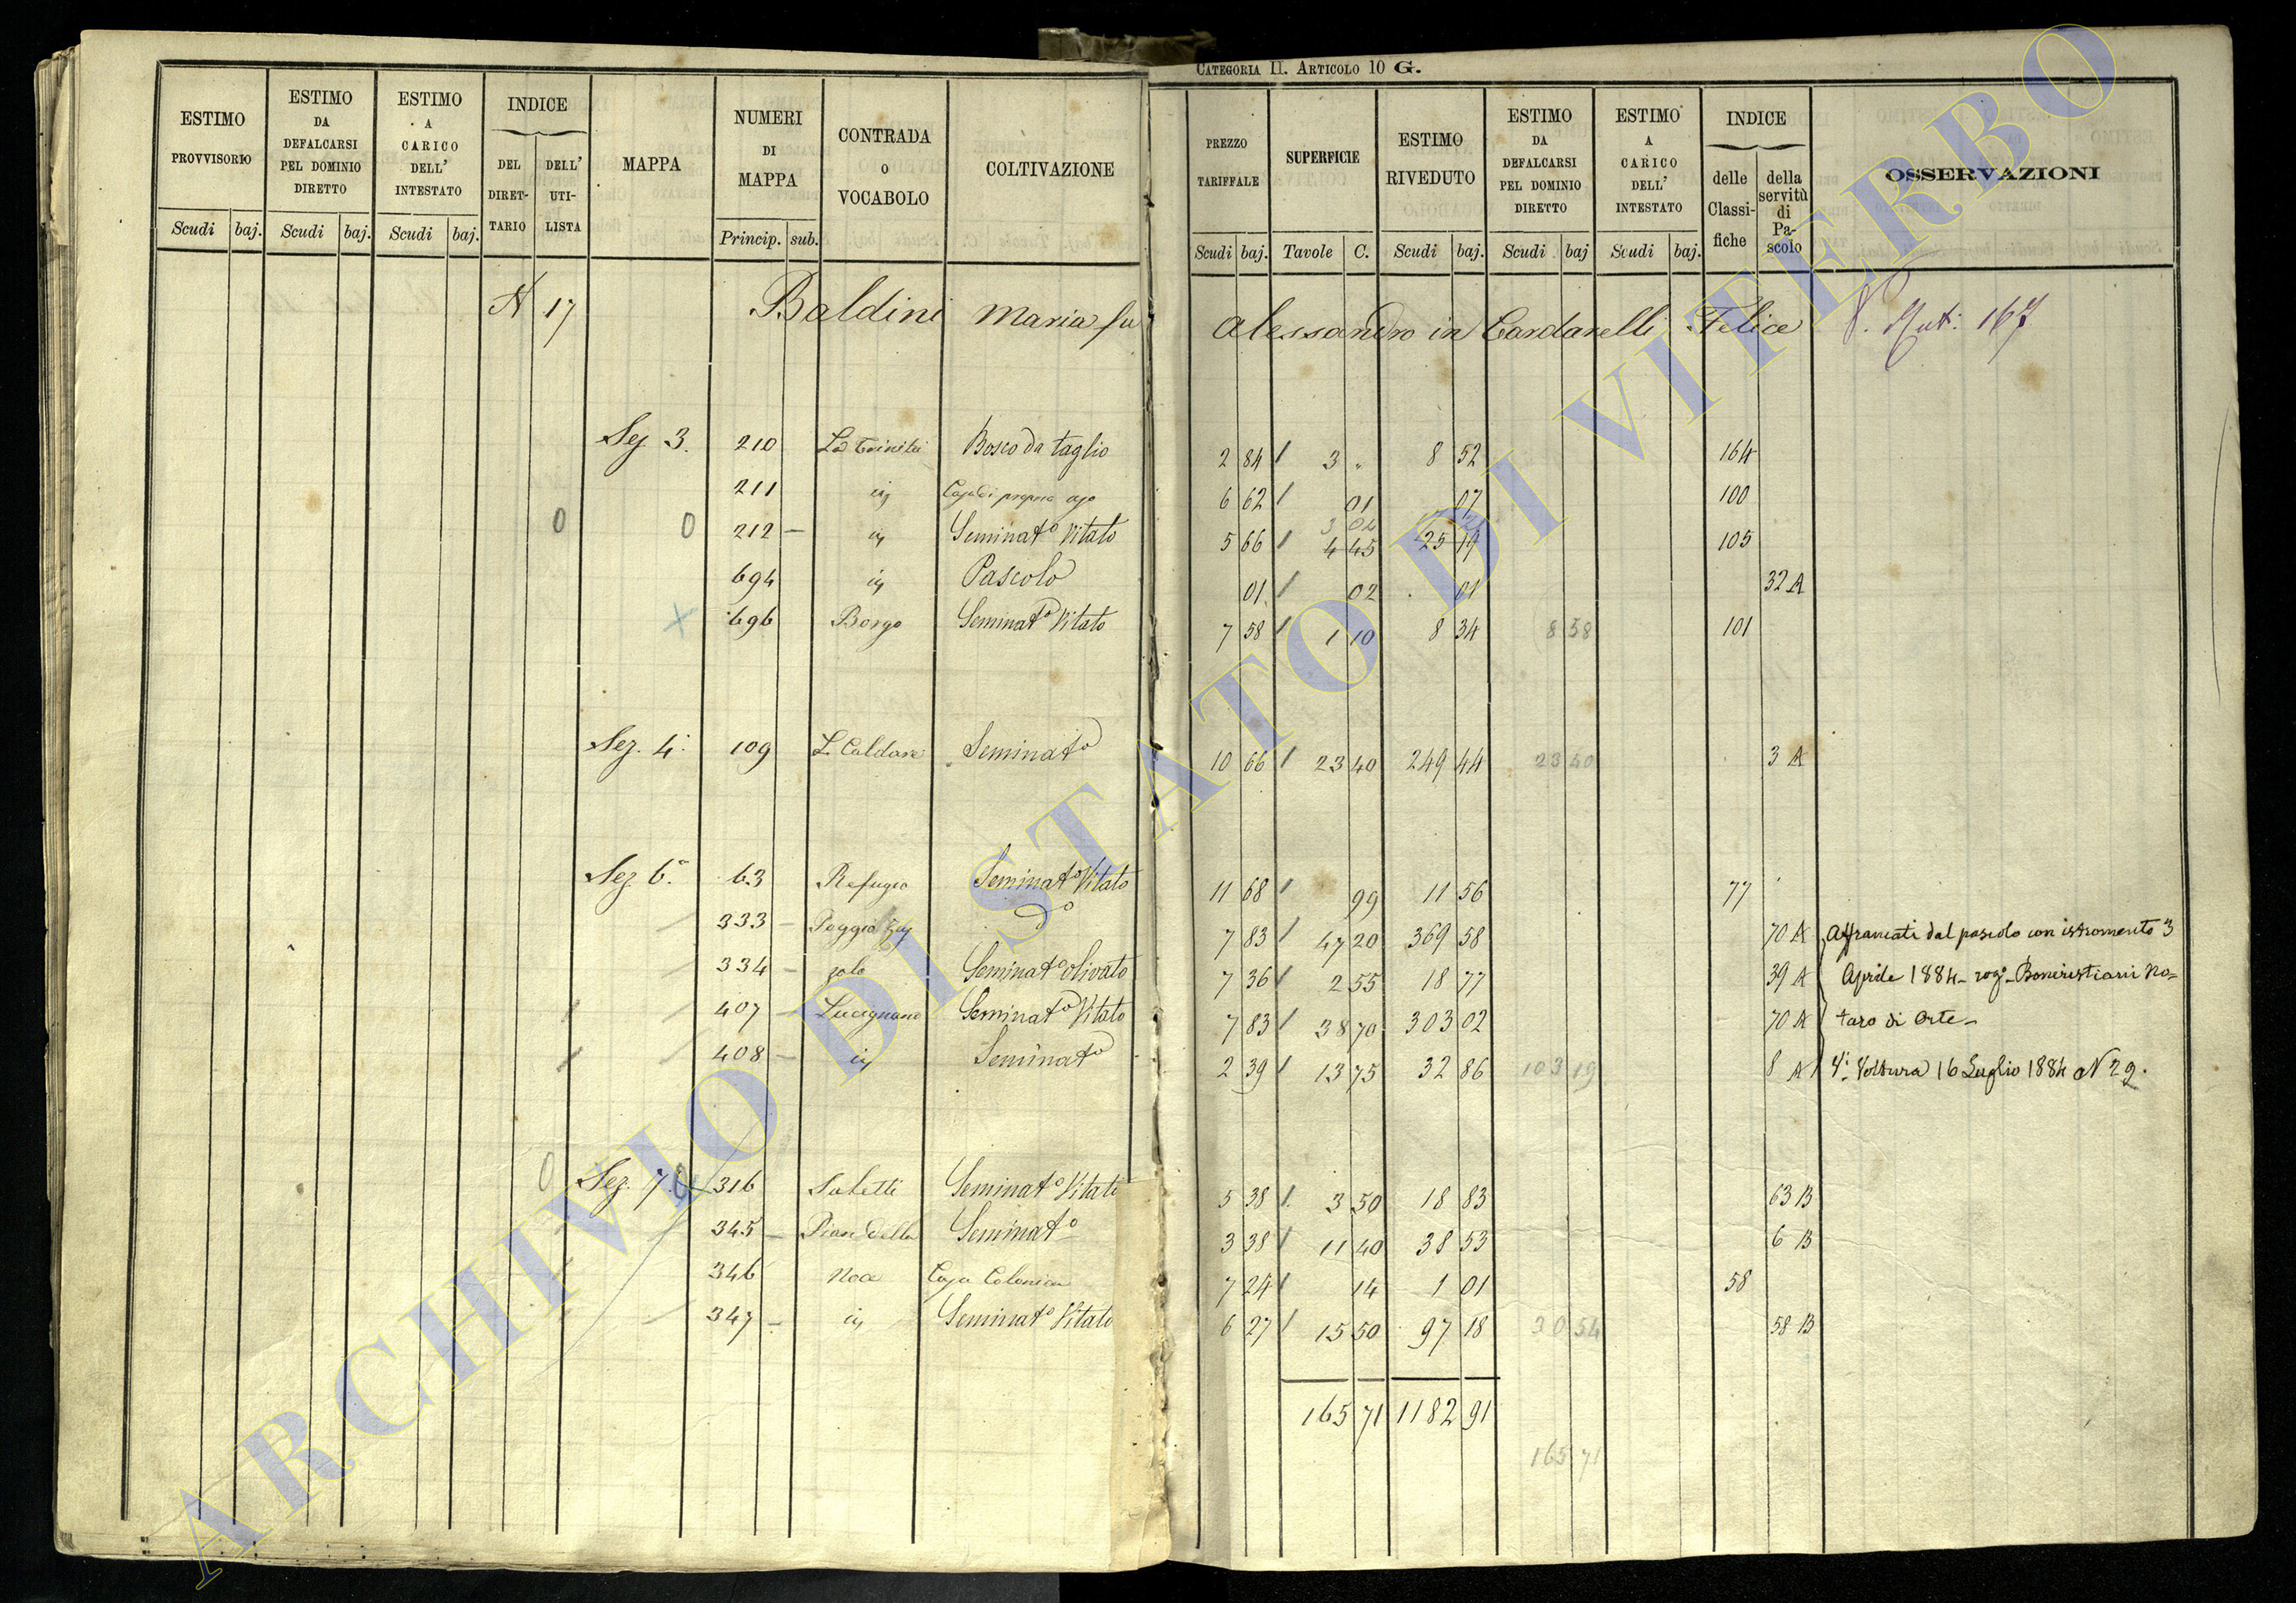 CATEGORIA II. ARTICOLO 10 G.
ESTIMO PROVVISORIO
ESTIMO DA DEFALCARSI PEL DOMINIO DIRETTO
ESTIMO A CARICO DELL' INTESTATO
INDICE
DEL DIRET-TARIO
DELL' UTI-LISTA
MAPPA
NUMERI DI MAPPA
CONTRADA O VOCABOLO
COLTIVAZIONE
PREZZO TARIFFALE
SUPERFICIE
ESTIMO RIVEDUTO
ESTIMO DA DEFALCARSI PEL DOMINIO DIRETTO
ESTIMO A CARICO DELL' INTESTATO
INDICE
delle Classi-fiche
della servitù di Pa-scolo
OSSERVAZIONI
Scudi baj. Scudi baj. Scudi baj. Princip. sub. Scudi baj. Tavole C. Scudi baj. Scudi baj Scudi baj.
N 17 Baldini Maria fu Alessandro in Cardarelli Felice V. Mut: 167
Sez. 3. 210 La Trinità Bosco da taglio 2 84 3 " 8 52 164
211 iv Casa di proprio uso 6 62 01 07 100
0 0 212 iv Seminato Vitato 5 66 4 45 25 19 105
694 iv Pascolo 01 02 01 32 A
X 696 Borgo Seminato Vitato 7 58 1 10 8 34 8 58 101
Sez. 4. 109 Le Caldare Seminato 10 66 23 40 249 44 23 40 3 A
Sez 6. 63 Refugio Seminato Vitato 11 68 99 11 56 77
333 Poggio Zuc do 7 83 47 20 369 58 70 A Affrancati dal pascolo con istromento 3
334 Seminato olivato 7 36 2 55 18 77 39 A Aprile 1884 - rog. Boncristiani No=
407 Lucignano Seminato Vitato 7 83 38 70 303 02 70 A taro di Orte -
408 iv Seminato 2 39 13 75 32 86 103 19 8 A Voltura 16 Luglio 1884 N 29.
0 Sez. 7. 0 316 Saletti Seminato Vitato 5 38 3 50 18 83 63 B
345 Pian della Seminato 3 38 11 40 38 53 6 B
346 Noce Casa Colonica 7 24 14 1 01 58
347 iv Seminato Vitato 6 27 15 50 97 18 30 54 58 B
165 71 1182 91
165 71
ARCHIVIO DI STATO DI VITERBO